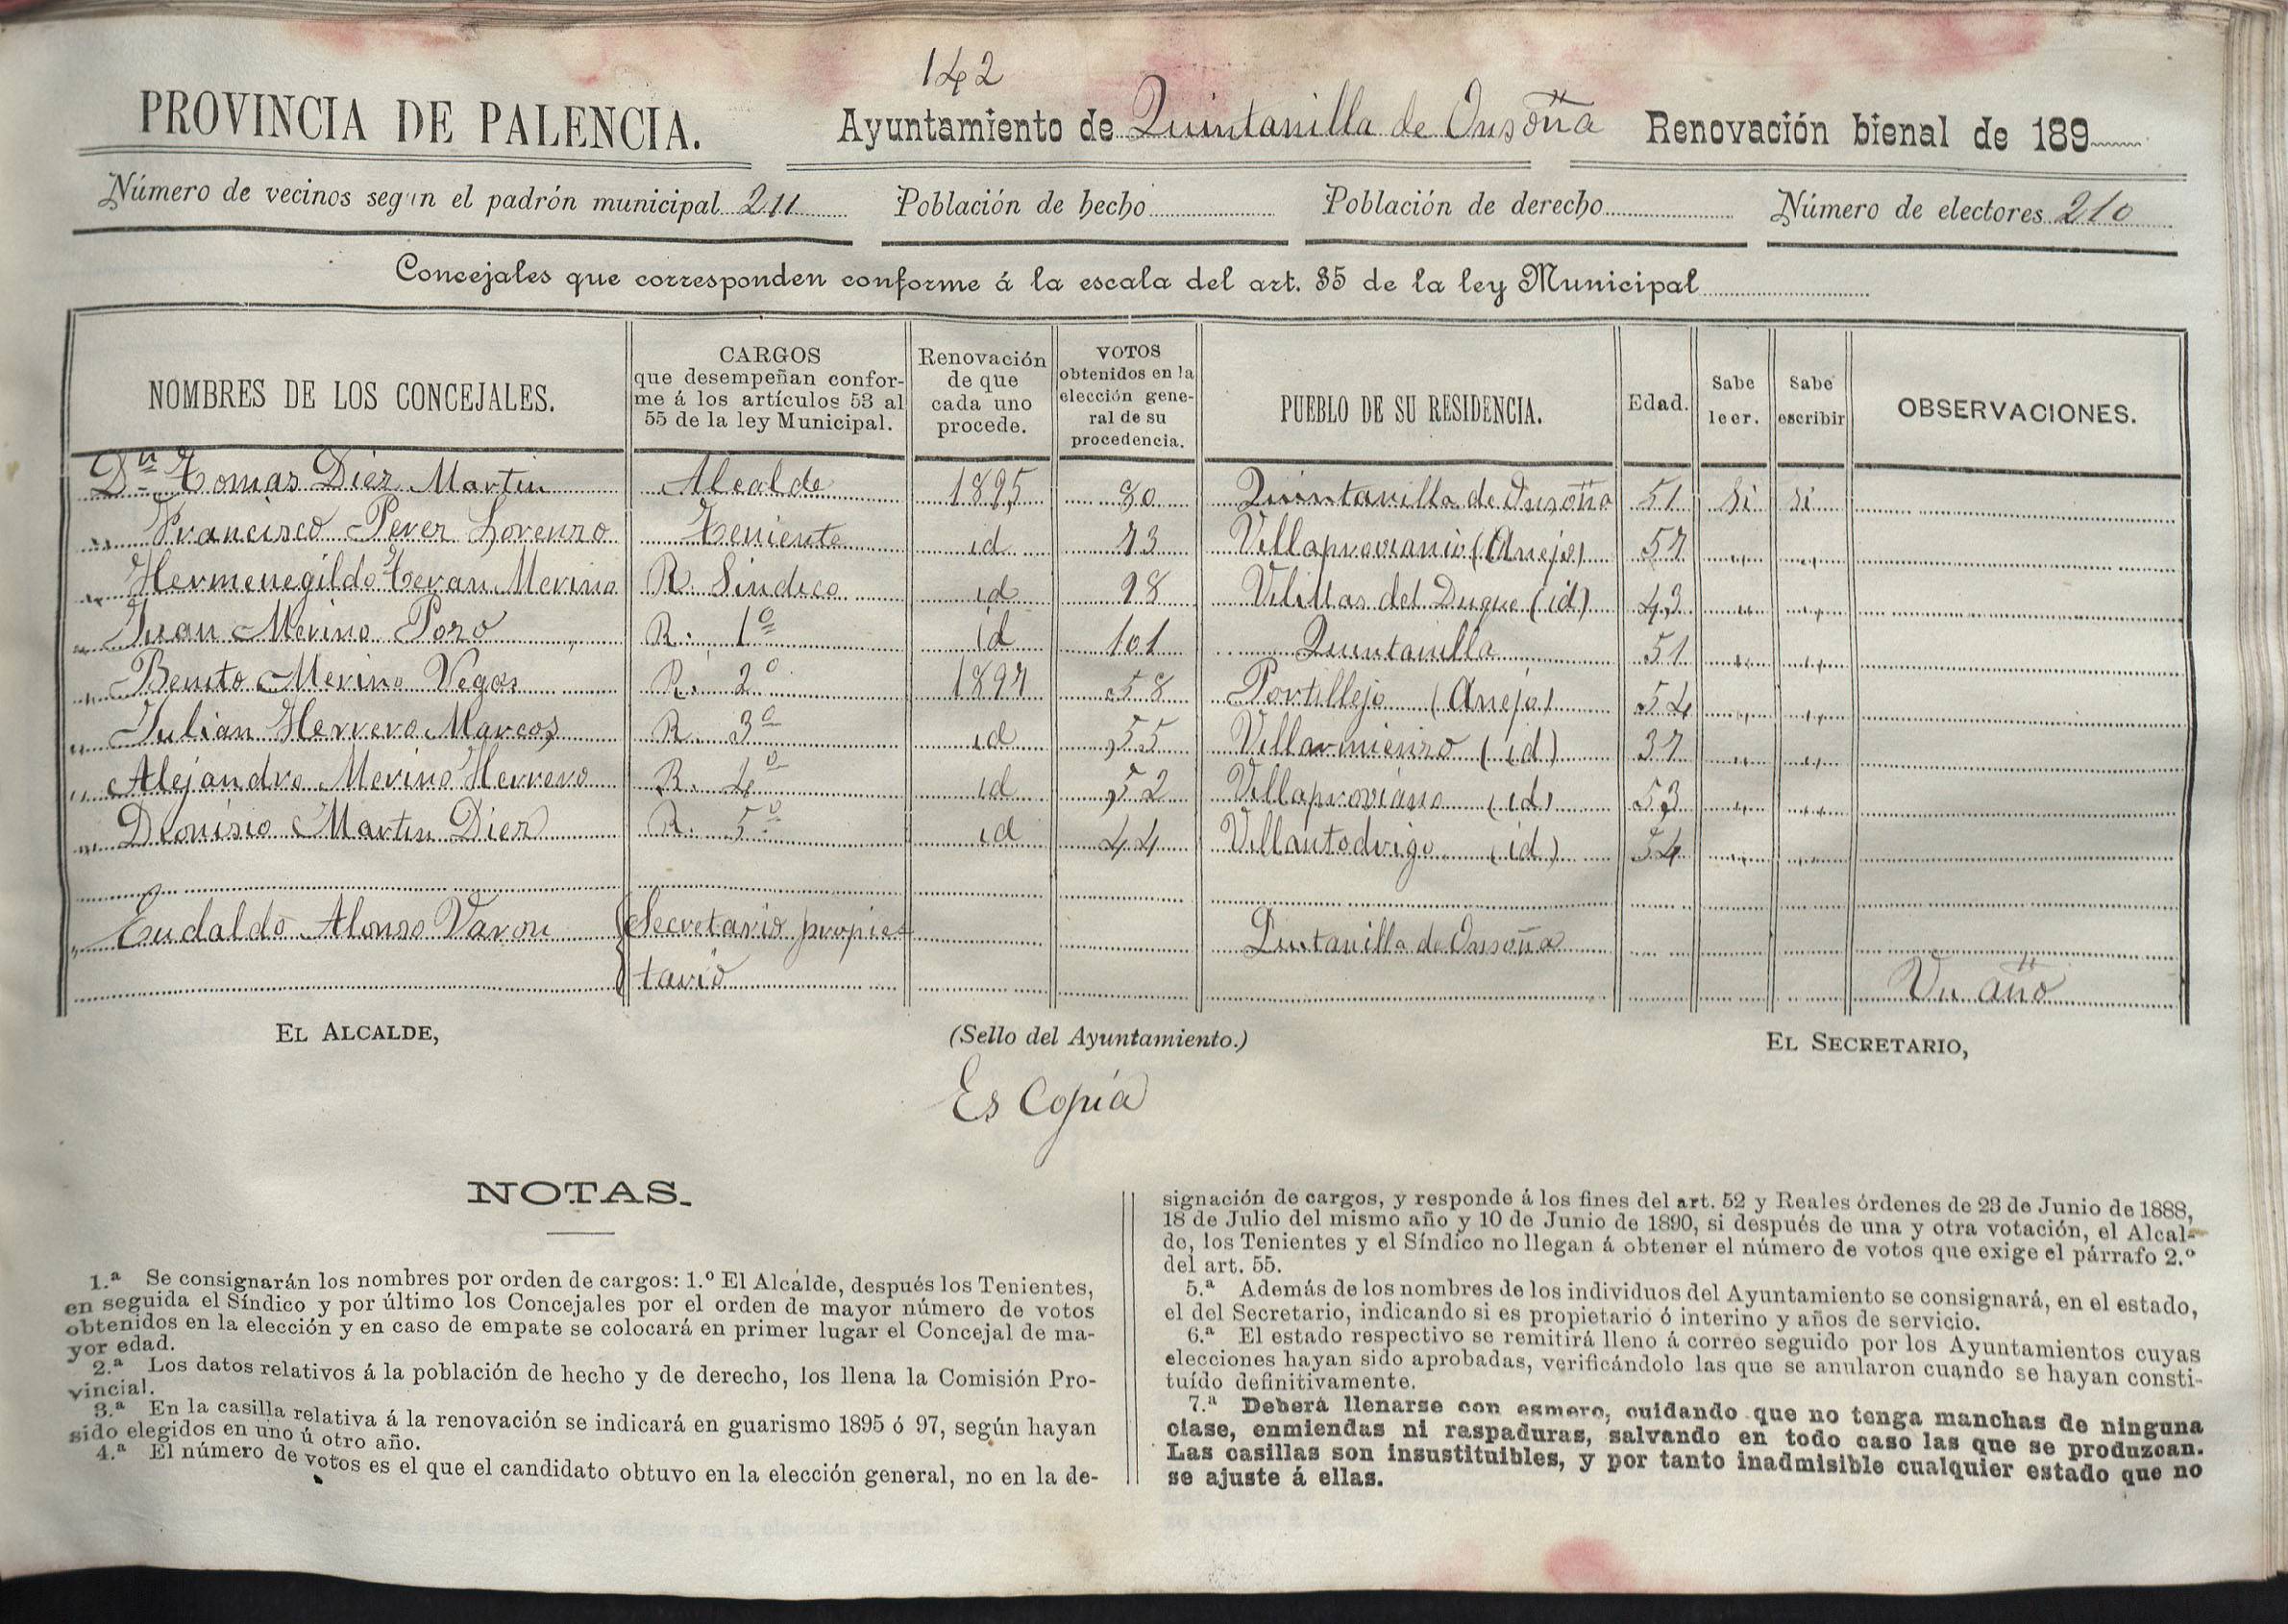 142
PROVINCIA DE PALENCIA. Ayuntamiento de Quintanilla de Onsoña Renovación bienal de 189
Número de vecinos según el padrón municipal 211 Población de hecho Población de derecho Número de electores 210
Concejales que corresponden conforme á la escala del art. 35 de la ley Municipal
NOMBRES DE LOS CONCEJALES. CARGOS que desempeñan conforme á los artículos 53 al 55 de la ley Municipal. Renovación de que cada uno procede. VOTOS obtenidos en la elección general de su procedencia. PUEBLO DE SU RESIDENCIA. Edad. Sabe leer. Sabe escribir OBSERVACIONES.
Dn Tomas Diez Martin Alcalde 1895 80 Quintanilla de Onsoña 51 Si si
" Francisco Perez Lorenzo Teniente id 73 Villaproviano (Anejo) 57 " "
" Hermenegildo Teran Merino R. Sindico id 98 Velillas del Duque (id) 43 " "
" Juan Merino Pozo R. 1º id 101 Quintanilla 51 " "
" Benito Merino Vegas R. 2º 1897 58 Portillejo (Anejo) 54 " "
" Julian Herrero Marcos R. 3º id 55 Villarmienzo (id) 37 " "
" Alejandro Merino Herrero R. 4º id 52 Villaproviano (id) 53 " "
" Dionisio Martin Diez R. 5º id 44 Villantodrigo (id) 54 " "
" Eudaldo Alonso Varon Secretario propie- Quintanilla de Onsoña
tario Un año
EL ALCALDE, (Sello del Ayuntamiento.) EL SECRETARIO,
Es Copia
NOTAS.
1.ª Se consignarán los nombres por orden de cargos: 1.º El Alcalde, después los Tenientes,
en seguida el Síndico y por último los Concejales por el orden de mayor número de votos
obtenidos en la elección y en caso de empate se colocará en primer lugar el Concejal de ma-
yor edad.
2.ª Los datos relativos á la población de hecho y de derecho, los llena la Comisión Pro-
vincial.
3.ª En la casilla relativa á la renovación se indicará en guarismo 1895 ó 97, según hayan
sido elegidos en uno ú otro año.
4.ª El número de votos es el que el candidato obtuvo en la elección general, no en la de-
signación de cargos, y responde á los fines del art. 52 y Reales órdenes de 23 de Junio de 1888,
18 de Julio del mismo año y 10 de Junio de 1890, si después de una y otra votación, el Alcal-
de, los Tenientes y el Síndico no llegan á obtener el número de votos que exige el párrafo 2.º
del art. 55.
5.ª Además de los nombres de los individuos del Ayuntamiento se consignará, en el estado,
el del Secretario, indicando si es propietario ó interino y años de servicio.
6.ª El estado respectivo se remitirá lleno á correo seguido por los Ayuntamientos cuyas
elecciones hayan sido aprobadas, verificándolo las que se anularon cuando se hayan consti-
tuído definitivamente.
7.ª Deberá llenarse con esmero, cuidando que no tenga manchas de ninguna
clase, enmiendas ni raspaduras, salvando en todo caso las que se produzcan.
Las casillas son insustituibles, y por tanto inadmisible cualquier estado que no
se ajuste á ellas.